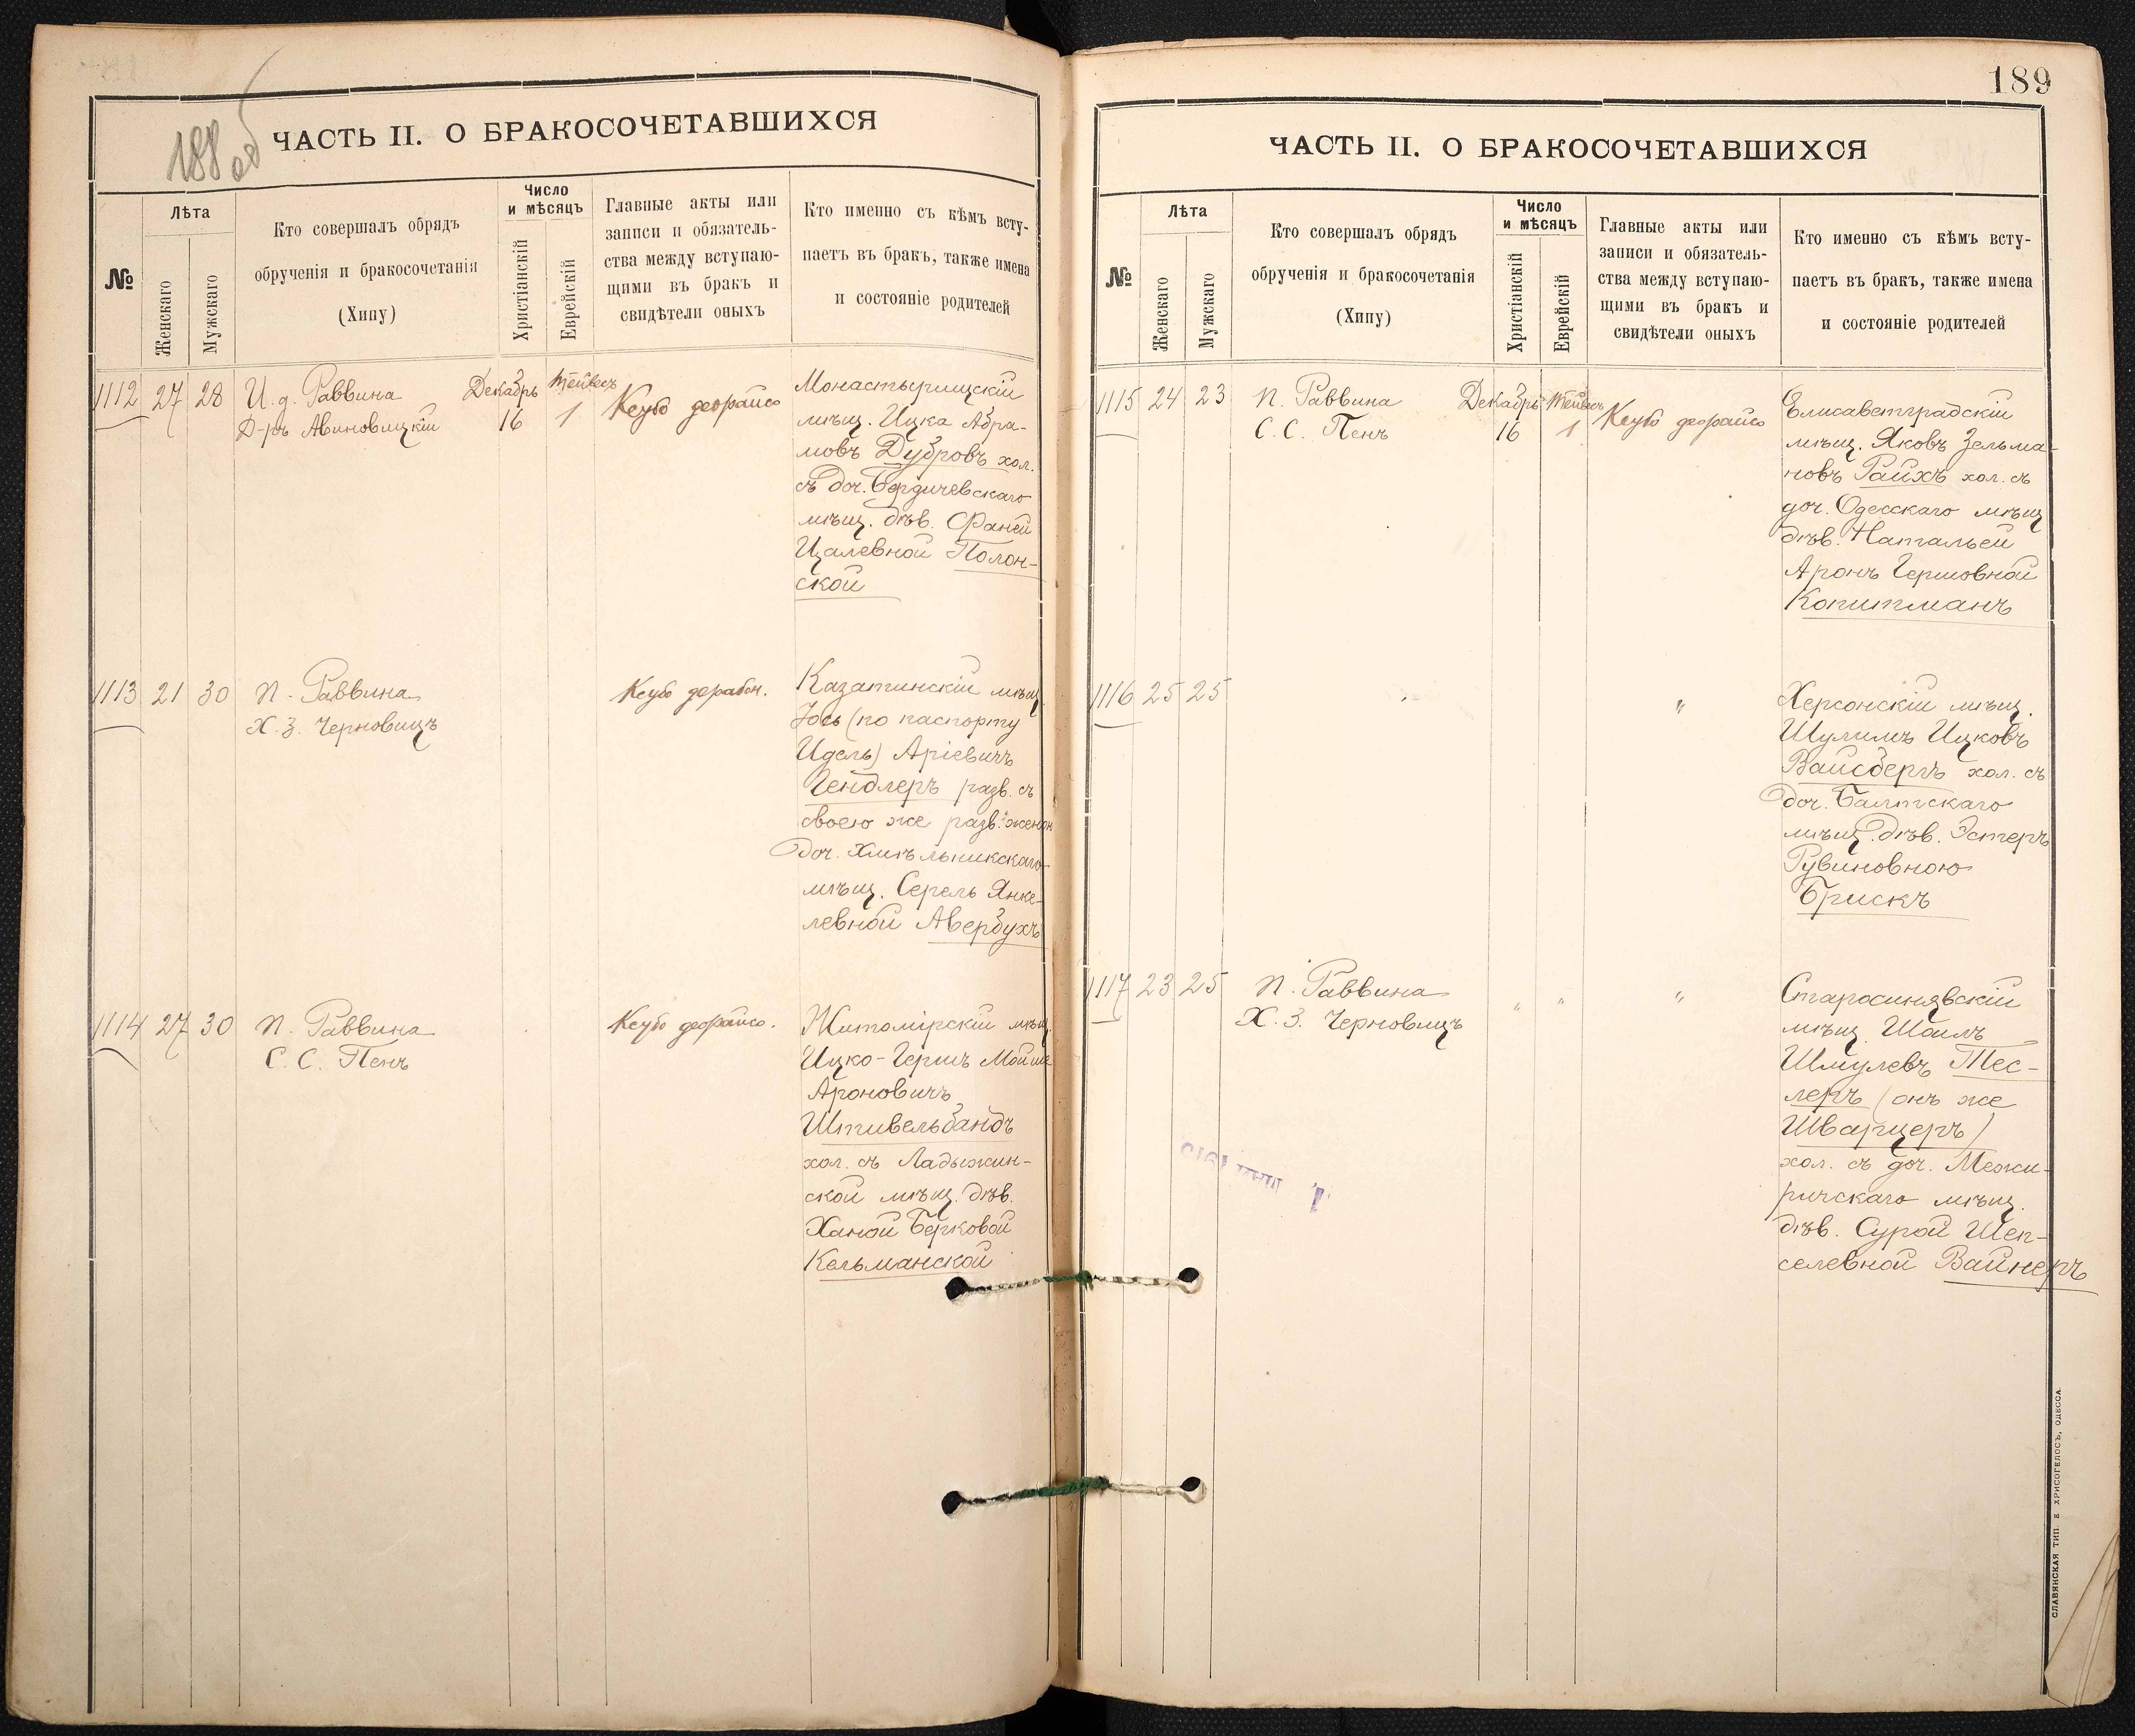 188 об
ЧАСТЬ II. О БРАКОСОЧЕТАВШИХСЯ
№
Лѣта
Женскаго
Мужскаго
Кто совершалъ обрядъ
обрученія и бракосочетанія
(Хипу)
Число
и мѣсяцъ
Христіанскій
Еврейскій
Главные акты или
записи и обязатель-
ства между вступаю-
щими въ бракъ и
свидѣтели оныхъ
Кто именно съ кѣмъ всту-
паетъ въ бракъ, также имена
и состояніе родителей
1112 27 28
И. д. Раввина
Д-ръ Авиновицкій
Декабрь
16
Тейвесъ
1
Кеубо деорайсо
Монастырищскій
мѣщ. Ицка Абра-
мовъ Дубровъ хол.
съ доч. Бердичевскаго
мѣщ. дѣв. Фаней
Цалевной Полон-
ской
1113 21 30
П. Раввина
Х. З. Черновицъ
Кеубо дерабон.
Казатинскій мѣщ.
Іось (по паспорту
Идель) Аріевичъ
Гендлеръ разв. съ
своею же разв. женой
доч. Хмѣльникскаго
мѣщ. Серель Янке-
левной Авербухъ
1114 27 30
П. Раввина
С. С. Пенъ
Кеубо деорайсо.
Житомірскій мѣщ.
Ицко-Гершъ Мойше
Ароновичъ
Штивельбандъ
хол. съ Ладыжин-
ской мѣщ. дѣв.
Ханой Берковой
Кельманской
189
ЧАСТЬ II. О БРАКОСОЧЕТАВШИХСЯ
№
Лѣта
Женскаго
Мужскаго
Кто совершалъ обрядъ
обрученія и бракосочетанія
(Хипу)
Число
и мѣсяцъ
Христіанскій
Еврейскій
Главные акты или
записи и обязатель-
ства между вступаю-
щими въ бракъ и
свидѣтели оныхъ
Кто именно съ кѣмъ всту-
паетъ въ бракъ, также имена
и состояніе родителей
1115 24 23
П. Раввина
С. С. Пенъ
Декабрь
16
Тейвесъ
1
Кеубо деорайсо
Елисаветградскій
мѣщ. Яковъ Зельма-
новъ Райхъ хол. съ
доч. Одесскаго мѣщ
дѣв. Натальей
Аронъ Гершовной
Копитманъ
1116 25 25
"
Херсонскій мѣщ.
Шулимъ Ицковъ
Вайсбергъ хол. съ
доч. Балтскаго
мѣщ. дѣв. Эстеръ
Рувиновною
Брискъ
1117 23 25
П. Раввина
Х. З. Черновицъ
" " "
Старосинявскій
мѣщ. Шоилъ
Шмулевъ Тес-
леръ (онъ же
Шварцеръ)
хол. съ доч. Межи-
ричскаго мѣщ.
дѣв. Сурой Шеп-
селевной Вайнеръ
СЛАВЯНСКАЯ ТИП. Е ХРИСОГЕЛОСЪ, ОДЕССА.